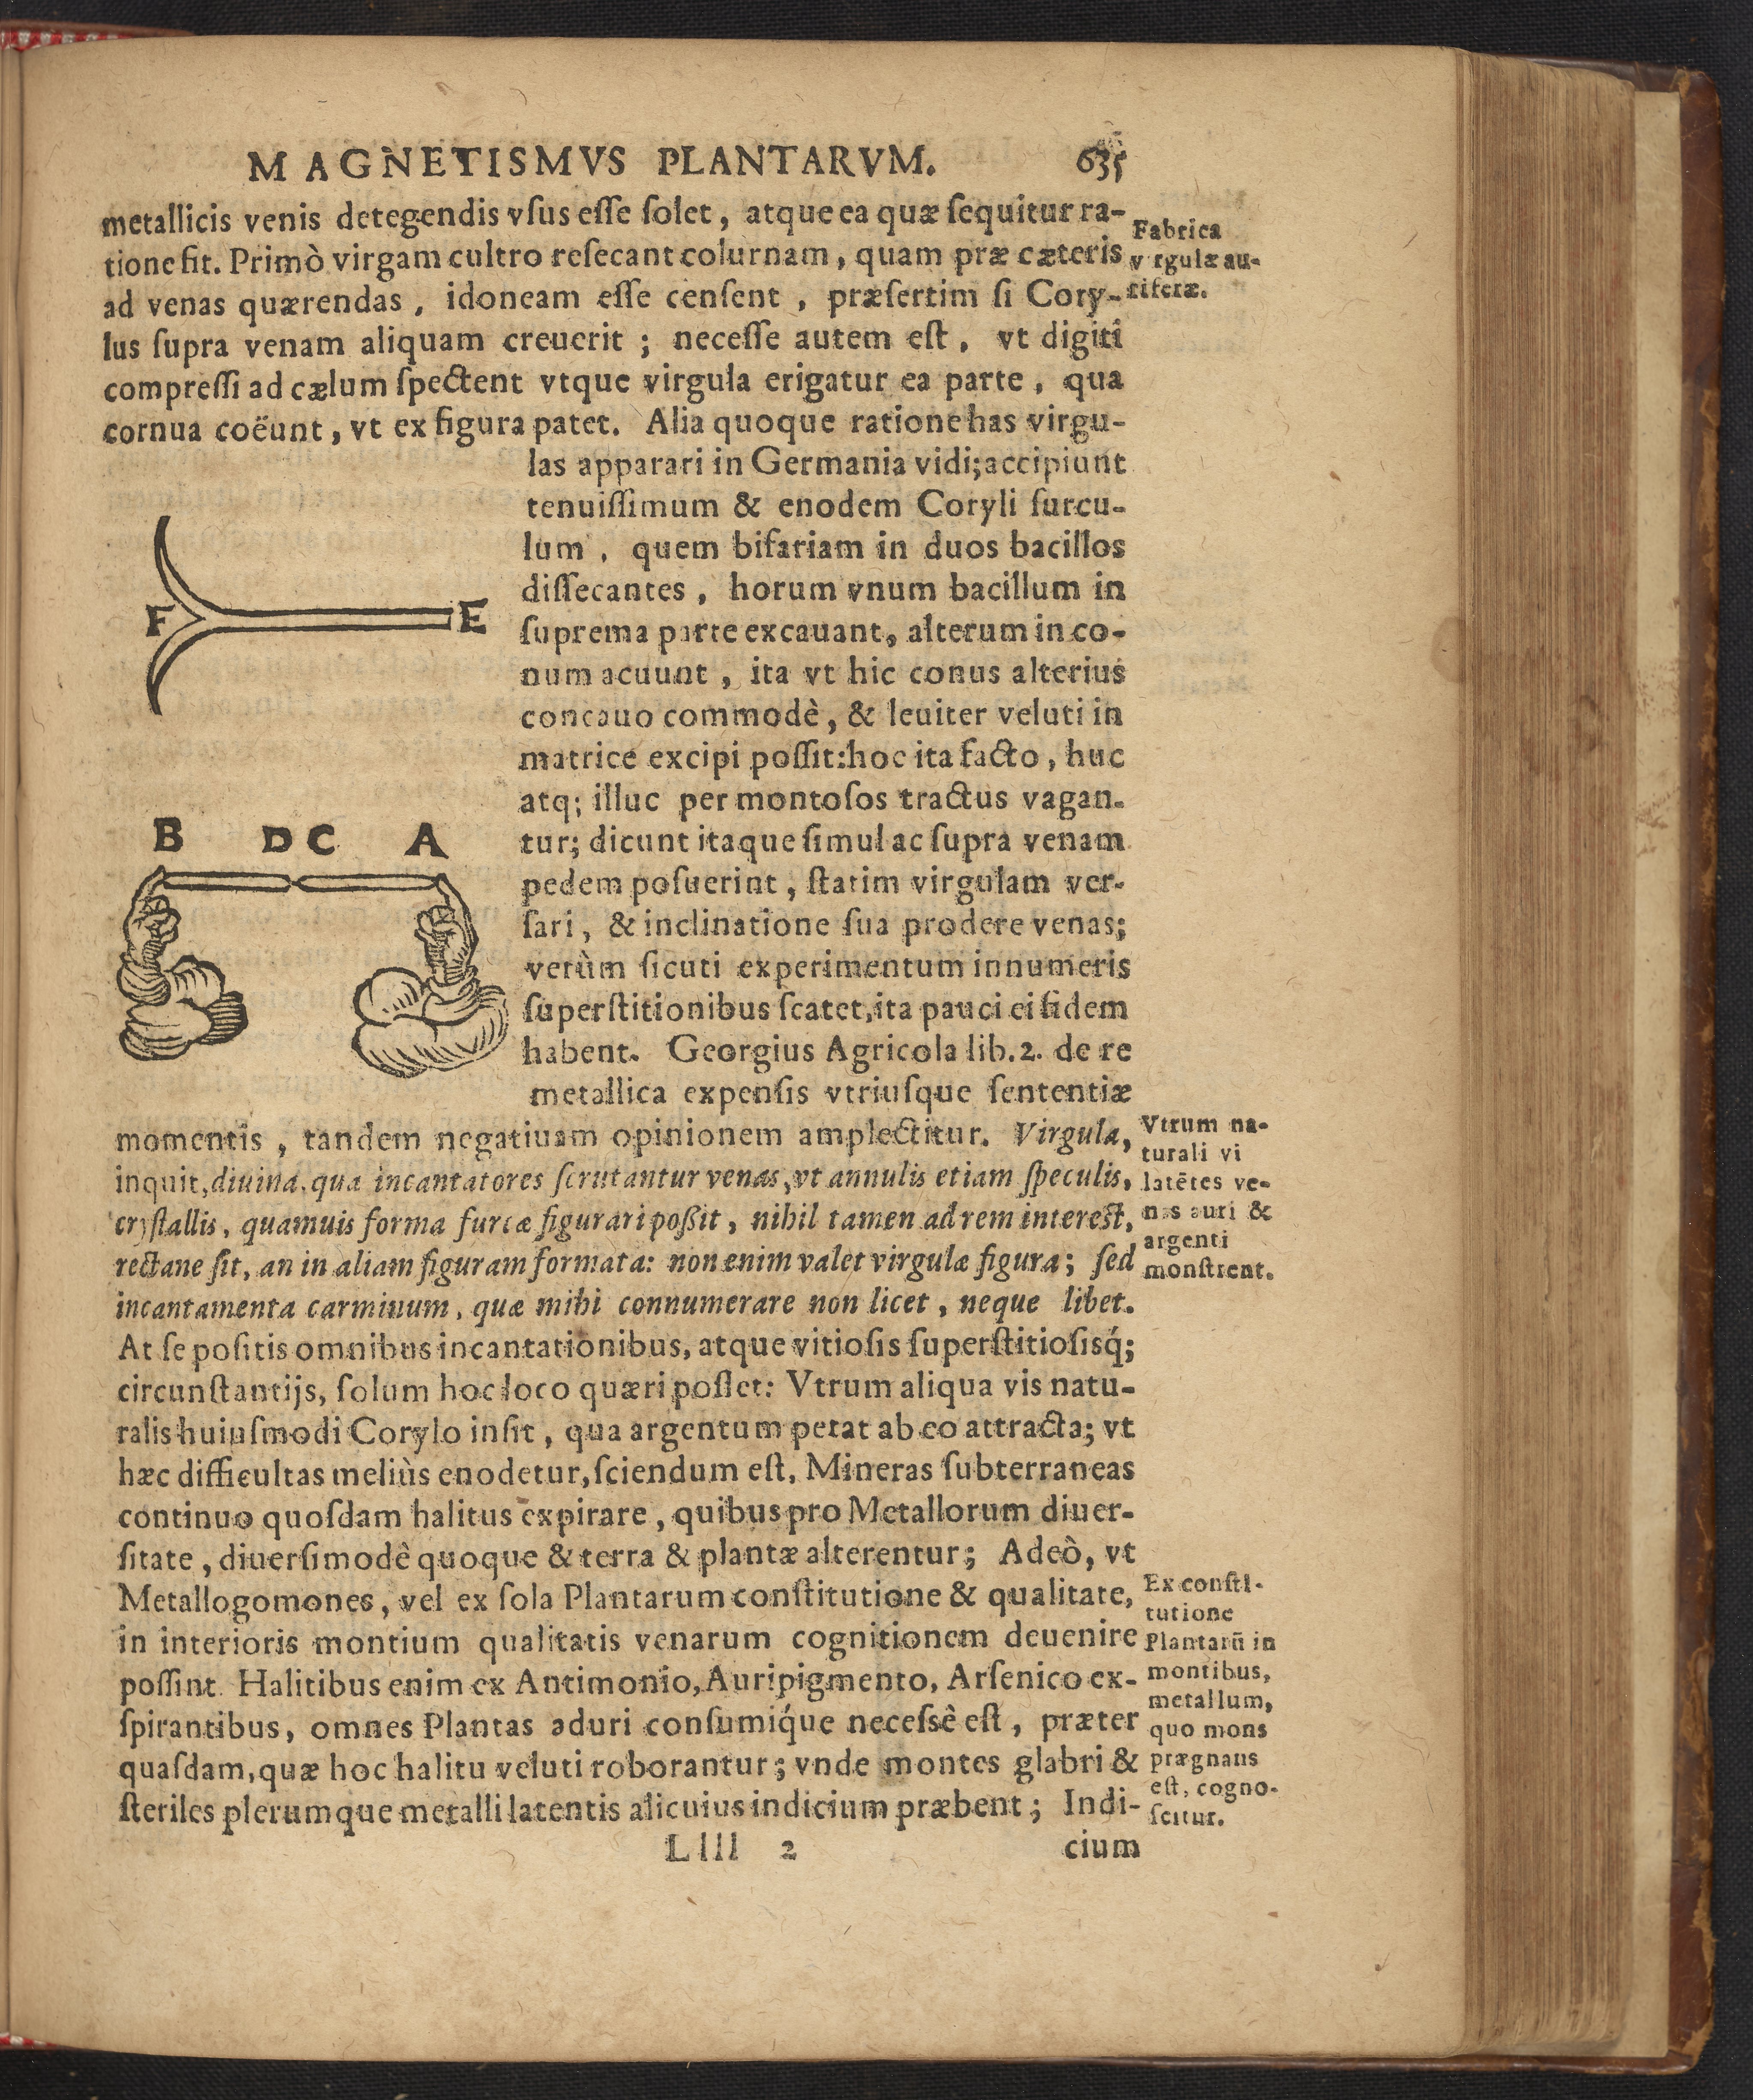 MAGNETISMVS PLANTARVM. 635
metallicis venis detegendis vſus eſſe ſolet, atque ea quæ ſequitur ra-
tione fit. Primò virgam cultro reſecant colurnam, quam præ cæteris
ad venas quærendas, idoneam eſſe cenſent, præſertim ſi Cory-
lus ſupra venam aliquam creuerit; neceſſe autem eſt, vt digiti
compreſſi ad cælum ſpectent vtque virgula erigatur ea parte, qua
cornua coëunt, vt ex figura patet. Alia quoque ratione has virgu-
Fabrica
virgulæ au-
riferæ.
las apparari in Germania vidi; accipiunt
tenuiſſimum & enodem Coryli ſurcu-
lum, quem bifariam in duos bacillos
diſſecantes, horum vnum bacillum in
ſuprema parte excauant, alterum in co-
num acuunt, ita vt hic conus alterius
concauo commodè, & leuiter veluti in
matrice excipi poſſit: hoc ita facto, huc
atq; illuc per montoſos tractus vagan-
tur; dicunt itaque ſimul ac ſupra venam
pedem poſuerint, ſtatim virgulam ver-
ſari, & inclinatione ſua prodere venas;
verùm ſicuti experimentum innumeris
ſuperſtitionibus ſcatet, ita pauci ei fidem
habent. Georgius Agricola lib. 2. de re
metallica expenſis vtriuſque ſententiæ
F E
B D C A
momentis, tandem negatiuam opinionem amplectitur. Virgula,
inquit, diuina, qua incantatores ſcrutantur venas, vt annulis etiam ſpeculis,
cryſtallis, quamuis forma furcæ figurari poßit, nihil tamen ad rem intereſt,
rectane ſit, an in aliam figuram formata: non enim valet virgulæ figura; ſed
incantamenta carminum, quæ mihi connumerare non licet, neque libet.
At ſepoſitis omnibus incantationibus, atque vitioſis ſuperſtitioſisq́;
circunſtantijs, ſolum hoc loco quæri poſſet: Vtrum aliqua vis natu-
ralis huiuſmodi Corylo inſit, qua argentum petat ab eo attracta; vt
hæc difficultas meliùs enodetur, ſciendum eſt, Mineras ſubterraneas
continuo quoſdam halitus expirare, quibus pro Metallorum diuer-
ſitate, diuerſimodè quoque & terra & plantæ alterentur; Adeò, vt
Metallogomones, vel ex ſola Plantarum conſtitutione & qualitate,
in interioris montium qualitatis venarum cognitionem deuenire
poſſint. Halitibus enim ex Antimonio, Auripigmento, Arſenico ex-
ſpirantibus, omnes Plantas aduri conſumiq́ue neceſsè eſt, præter
quaſdam, quæ hoc halitu veluti roborantur; vnde montes glabri &
ſteriles plerumque metalli latentis alicuius indicium præbent; Indi-
Vtrum na-
turali vi
latētes ve-
nas auri &
argenti
monſtrent.
Ex conſti-
tutione
Plantarū in
montibus,
metallum,
quo mons
prægnans
eſt, cogno-
ſcitur.
Llll 2 cium